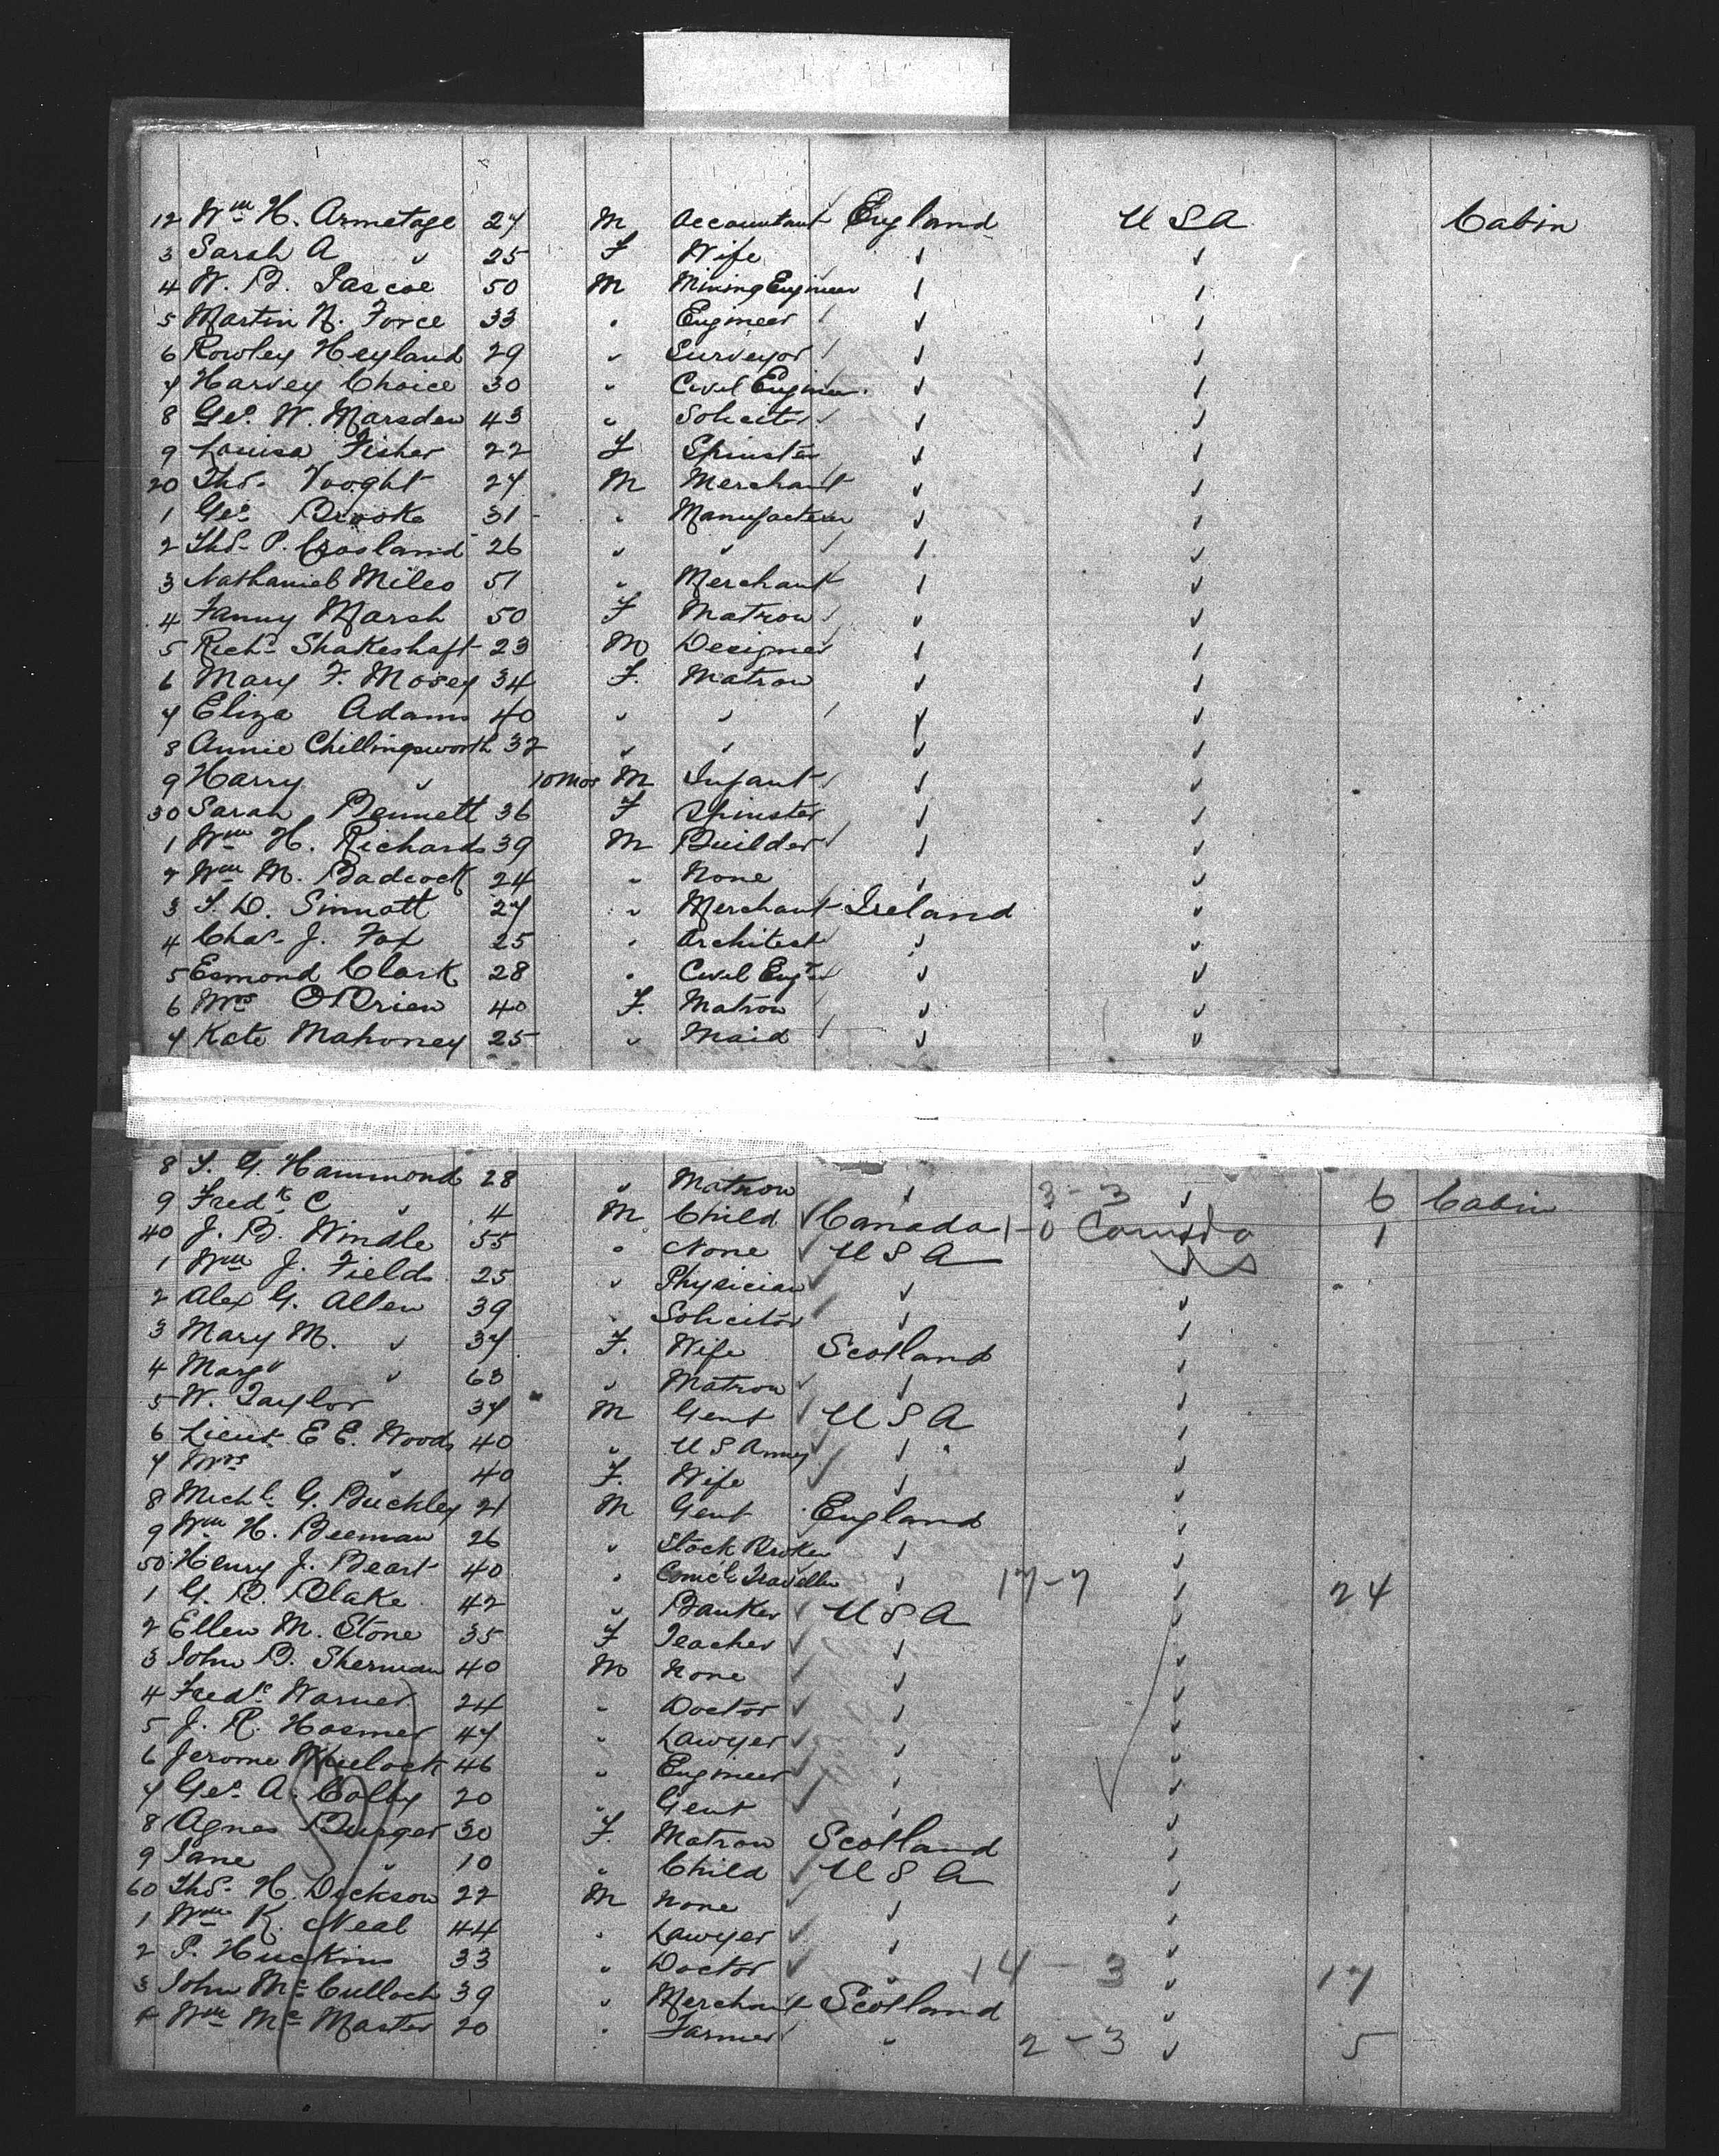 12 Wm H. Armetage 27 M Accountant England USA Cabin
3 Sarah A " 25 F Wife " "
4 W. B. Pascoe 50 M Mining Engineer " "
5 Martin N. Force 33 " Engineer " "
6 Rowley Heyland 29 " Surveyor " "
7 Harvey Choice 30 " Civil Engineer " "
8 Geo. W. Marsden 43 " Solicitor " "
9 Louisa Fisher 22 F Spinster " "
20 Thos. Vooght 27 M Merchant " "
1 Geo. Brook 31 " Manufacturer " "
2 Thos. P. Crosland 26 " " " "
3 Nathaniel Miles 51 " Merchant " "
4 Fanny Marsh 50 F Matron " "
5 Richd Shakeshaft 23 M Designer " "
6 Mary F. Mosey 34 F. Matron " "
7 Eliza Adams 40 " " " "
8 Annie Chillingsworth 32 " " " "
9 Harry " 10 mos M Infant " "
30 Sarah Bennett 36 F Spinster " "
1 Wm H. Richards 39 M Builder " "
2 Wm M. Badcock 24 " None " "
3 T. D. Sinnott 27 " Merchant Ireland "
4 Chas. J. Fox 25 " Architect " "
5 Esmond Clark 28 " Civil Engr " "
6 Mrs O'Brien 40 F. Matron " "
7 Kate Mahoney 25 " Maid " "
8 T. G. Hammond 28 " Matron " 3-3 " 6 Cabin
9 Fredk C " 4 M Child Canada 1-0 Canada 1
40 J. B. Windle 55 " None USA US
1 Wm J. Fields 25 " Physician " "
2 Alex G. Allen 39 " Solicitor " "
3 Mary M. " 37 F. Wife Scotland "
4 Margt " 63 " Matron " "
5 W. Taylor 37 M Gent USA "
6 Lieut E E. Woods 40 " US Army " "
7 Mrs " 40 F. Wife " "
8 Michl. G. Buckley 21 M Gent England "
9 Wm H. Beeman 26 " Stock Broker " "
50 Henry J. Beart 40 " Comcl Traveller " 17-7 " 24
1 G. B. Blake 42 " Banker USA "
2 Ellen M. Stone 35 F Teacher " "
3 John B. Sherman 40 M None " "
4 Fredk Warner 24 " Doctor " "
5 J. R. Hosmer 47 " Lawyer " "
6 Jerome Wheelock 46 " Engineer " "
7 Geo. A. Colby 20 " Gent " "
8 Agnes Burger 30 F. Matron Scotland "
9 Jane " 10 " Child USA "
60 Thos. H. Dickson 22 M None " "
1 Wm K. Neal 44 " Lawyer " "
2 P. Huckins 33 " Doctor " 14-3 " 17
3 John McCulloch 39 " Merchant Scotland "
4 Wm McMaster 20 " Farmer " 2-3 " 5